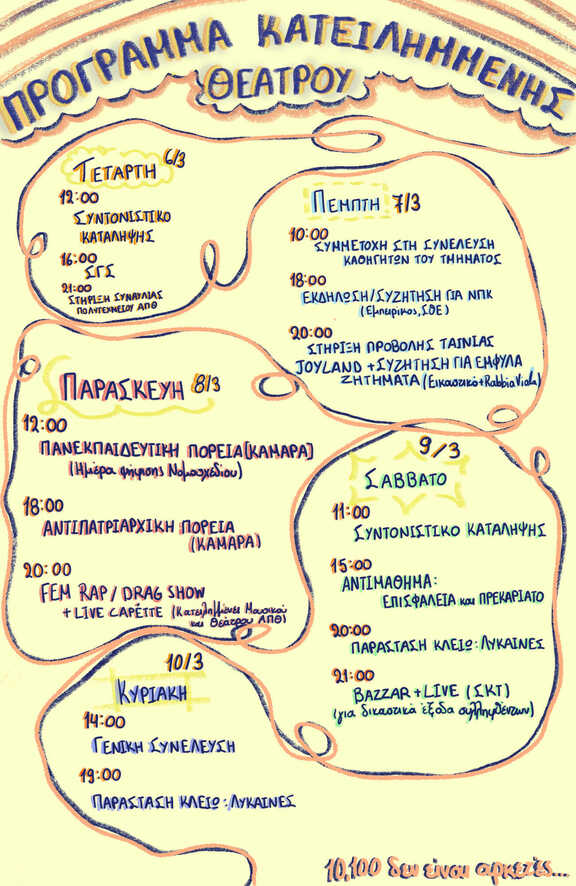 ΠΡΟΓΡΑΜΜΑ ΚΑΤΕΙΛΗΜΜΕΝΗΣ
ΘΕΑΤΡΟΥ
ΤΕΤΑΡΤΗ 6/3
12:00
ΣΥΝΤΟΝΙΣΤΙΚΟ
ΚΑΤΑΛΗΨΗΣ
16:00
ΣΓΣ
21:00
ΣΤΗΡΙΞΗ ΣΥΝΑΥΛΙΑΣ
ΠΟΛΥΤΕΧΝΕΙΟΥ ΑΠΘ
ΠΕΜΠΤΗ 7/3
10:00
ΣΥΜΜΕΤΟΧΗ ΣΤΗ ΣΥΝΕΛΕΥΣΗ
ΚΑΘΗΓΗΤΩΝ ΤΟΥ ΤΜΗΜΑΤΟΣ
18:00
ΕΚΔΗΛΩΣΗ/ΣΥΖΗΤΗΣΗ ΓΙΑ ΝΠΚ
(Εμπειρίκος, ΣΘΕ)
20:00
ΣΤΗΡΙΞΗ ΠΡΟΒΟΛΗΣ ΤΑΙΝΙΑΣ
JOYLAND + ΣΥΖΗΤΗΣΗ ΓΙΑ ΕΜΦΥΛΑ
ΖΗΤΗΜΑΤΑ (Εικαστικό + Rabbia Viola)
ΠΑΡΑΣΚΕΥΗ 8/3
12:00
ΠΑΝΕΚΠΑΙΔΕΥΤΙΚΗ ΠΟΡΕΙΑ (ΚΑΜΑΡΑ)
(Ημέρα ψήφισης Νομοσχεδίου)
18:00
ΑΝΤΙΠΑΤΡΙΑΡΧΙΚΗ ΠΟΡΕΙΑ
(ΚΑΜΑΡΑ)
20:00
FEM RAP / DRAG SHOW
+ LIVE CAPÉTTE (Κατειλημμένες Μουσικό
και Θεάτρου ΑΠΘ)
9/3
ΣΑΒΒΑΤΟ
11:00
ΣΥΝΤΟΝΙΣΤΙΚΟ ΚΑΤΑΛΗΨΗΣ
15:00
ΑΝΤΙΜΑΘΗΜΑ:
ΕΠΙΣΦΑΛΕΙΑ και ΠΡΕΚΑΡΙΑΤΟ
20:00
ΠΑΡΑΣΤΑΣΗ ΚΛΕΙΩ: ΛΥΚΑΙΝΕΣ
21:00
BAZZAR + LIVE (ΣΚΤ)
(για δικαστικά έξοδα συλληφθέντων)
10/3
ΚΥΡΙΑΚΗ
14:00
ΓΕΝΙΚΗ ΣΥΝΕΛΕΥΣΗ
19:00
ΠΑΡΑΣΤΑΣΗ ΚΛΕΙΩ: ΛΥΚΑΙΝΕΣ
10,100 δεν είναι αρκετές...